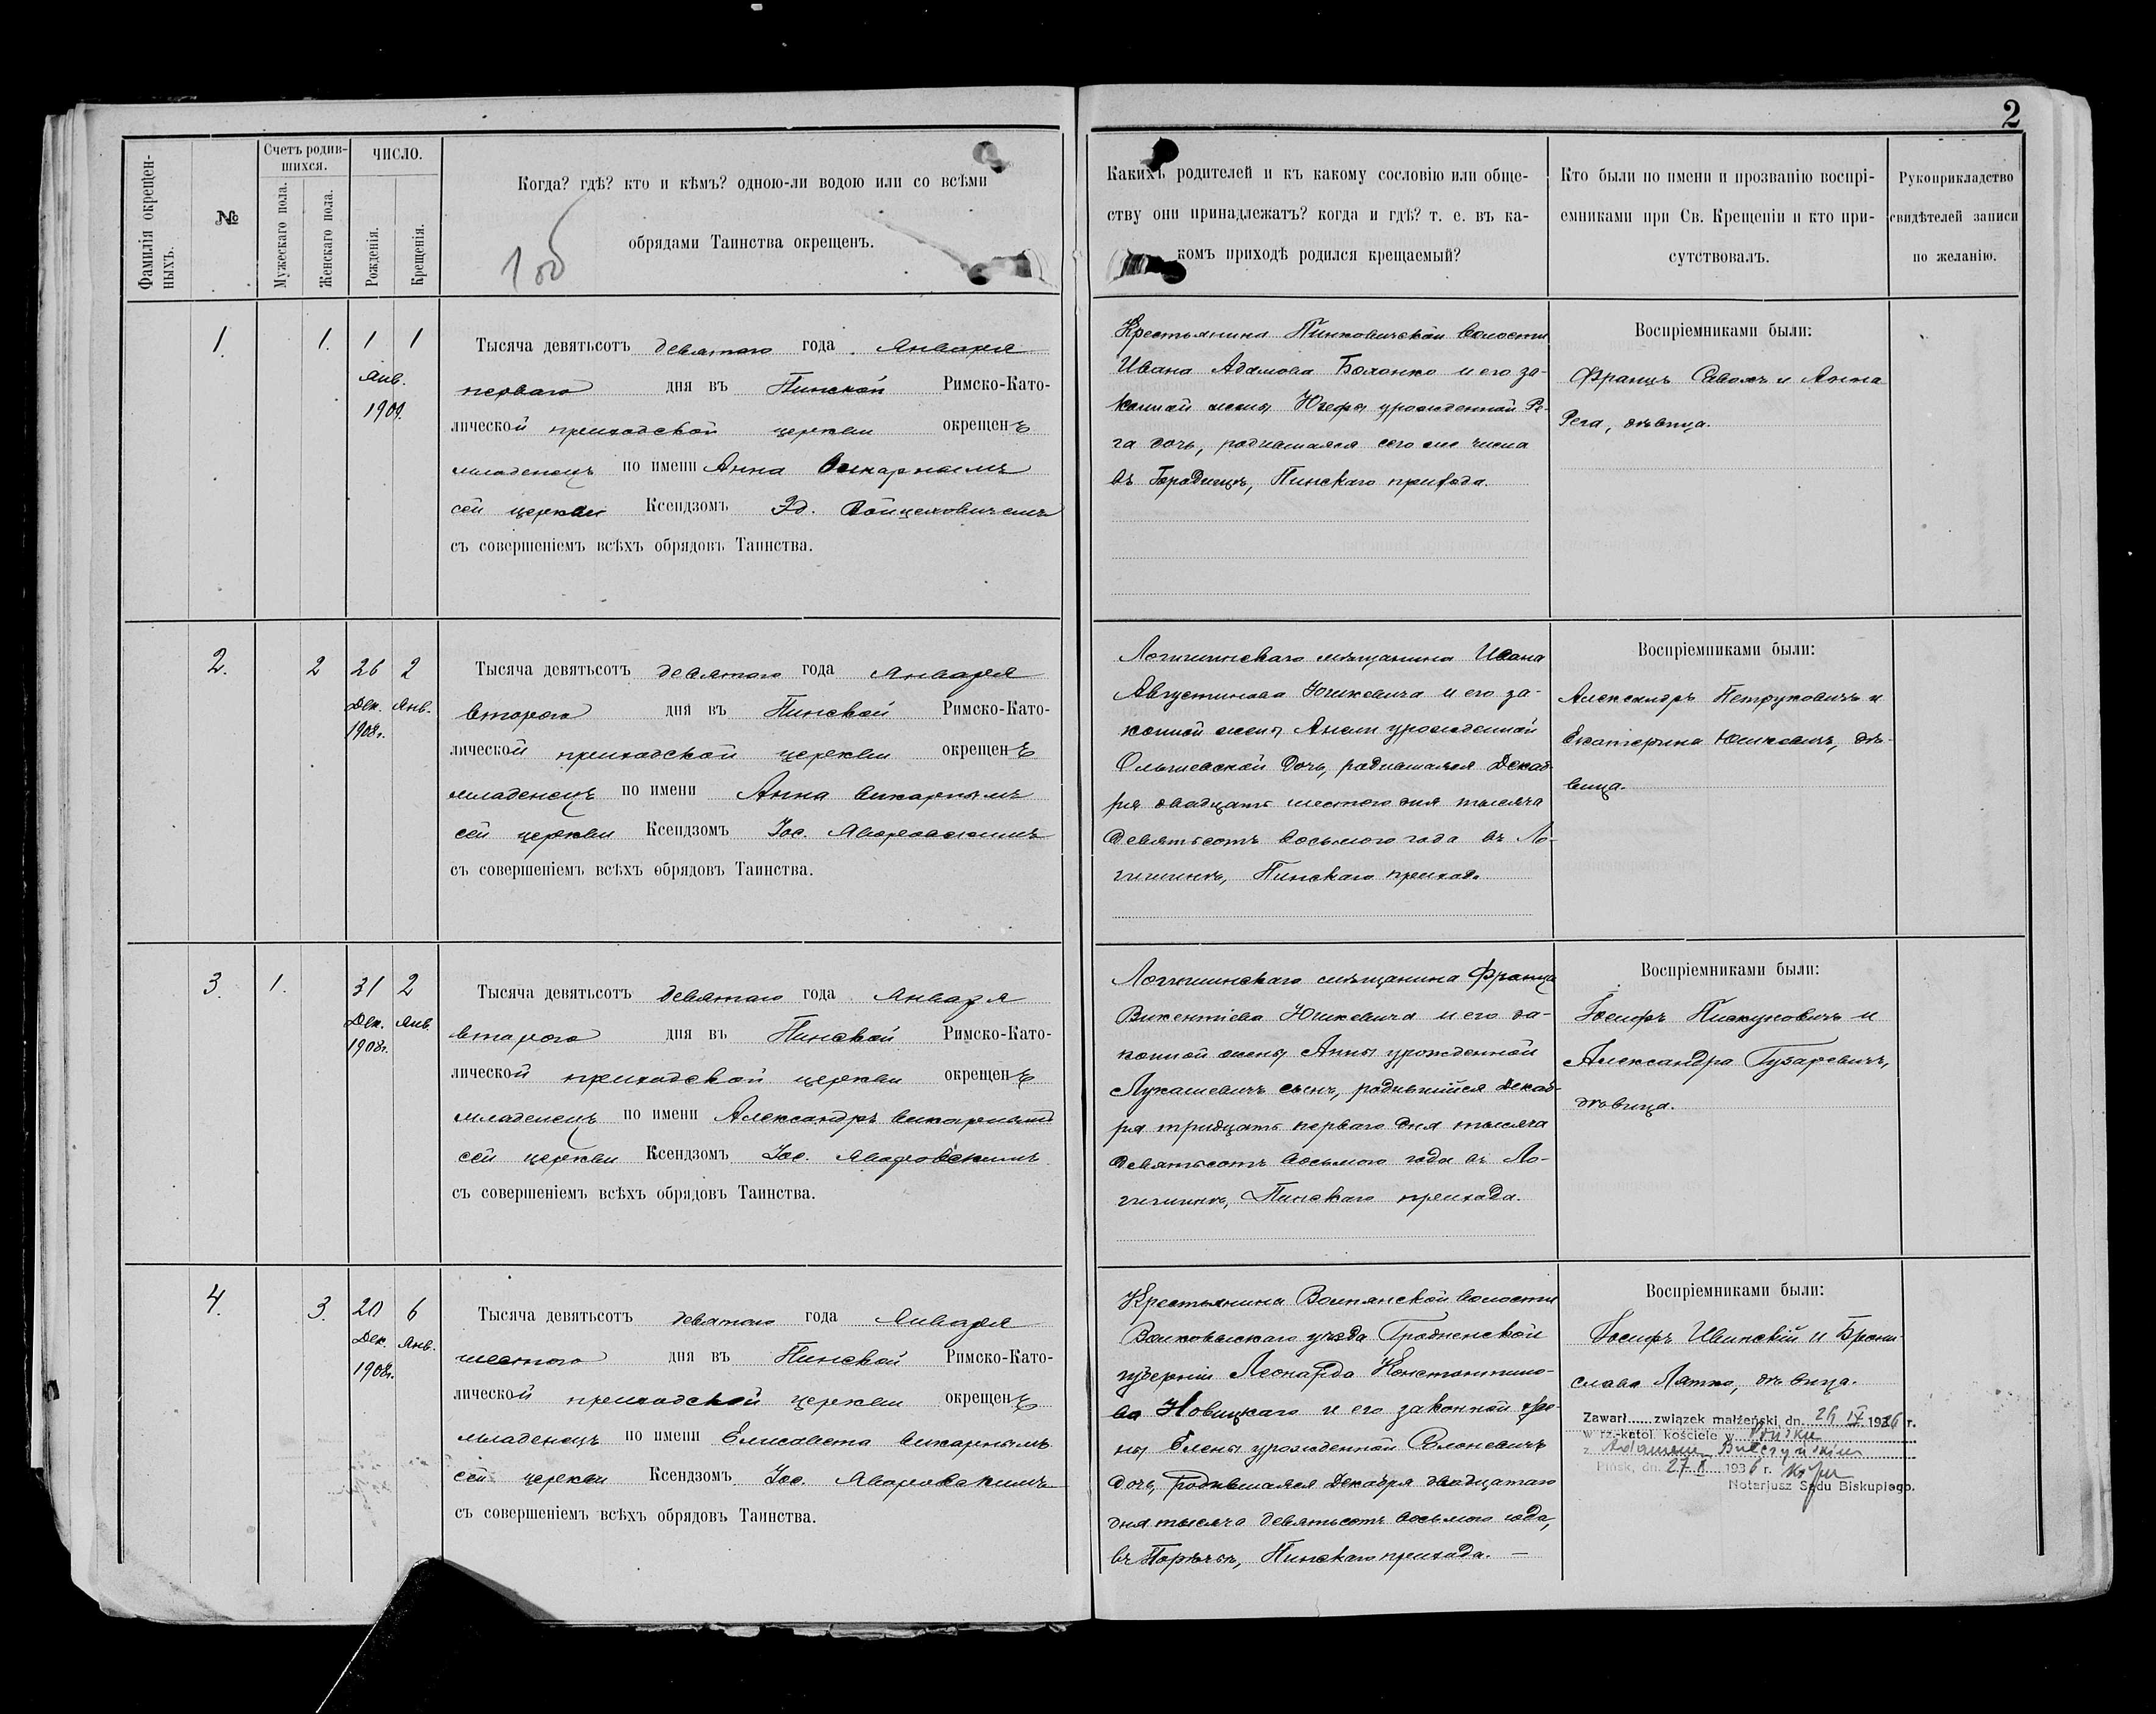 2
Фамилія окрещен-
ныхъ.
№
Счетъ родив-
шихся.
Мужескаго пола.
Женскаго пола.
ЧИСЛО.
Рожденія.
Крещенія.
Когда? гдѣ? кто и кѣмъ? одною-ли водою или со всѣми
обрядами Таинства окрещенъ.
Какихъ родителей и къ какому сословію или обще-
ству они принадлежатъ? когда и гдѣ? т. е. въ ка-
комъ приходѣ родился крещаемый?
Кто были по имени и прозванію воспрі-
емниками при Св. Крещеніи и кто при-
сутствовалъ.
Рукоприкладство
свидѣтелей записи
по желанію.
1. 1. 1 1
Янв.
1909.
Тысяча девятьсотъ девятаго года Января
перваго дня въ Пинской Римско-Като-
лической приходской церкви окрещенъ
младенецъ по имени Анна викарнымъ
сей церкви Ксендзомъ Эд. Войцеховичемъ
съ совершеніемъ всѣхъ обрядовъ Таинства.
Крестьянина Пинковичской волости
Ивана Адамова Болонко и его за-
конной жены Юзефы урожденной Ре-
га дочь, родившаяся сего же числа
въ Городищѣ, Пинскаго прихода.
Воспріемниками были:
Францъ и Анна
Рега, дѣвица.
2. 2 26 2
Дек. Янв.
1908г.
Тысяча девятьсотъ девятаго года Января
второго дня въ Пинской Римско-Като-
лической приходской церкви окрещенъ
младенецъ по имени Анна викарнымъ
сей церкви Ксендзомъ Іос. Яворовскимъ
съ совершеніемъ всѣхъ обрядовъ Таинства.
Логишинскаго мѣщанина Ивана
Августинова Юшкевича и его за-
конной жены урожденной
Ольшевской дочь, родившаяся Декаб-
ря двадцать шестого дня тысяча
девятьсотъ восьмого года въ Ло-
гишинѣ, Пинскаго прихода.
Воспріемниками были:
Александръ Петруковичъ и
Екатерина Юшкевичъ, дѣ-
вица.
3. 1. 31 2
Дек. Янв.
1908г.
Тысяча девятьсотъ девятаго года Января
второго дня въ Пинской Римско-Като-
лической приходской церкви окрещенъ
младенецъ по имени Александръ викарнымъ
сей церкви Ксендзомъ Іос. Яворовскимъ
съ совершеніемъ всѣхъ обрядовъ Таинства.
Логишинскаго мѣщанина Франца
Викентіева Юшкевича и его за-
конной жены Анны урожденной
Лукашевичъ сынъ, родившійся Декаб-
ря тридцать перваго дня тысяча
девятьсотъ восьмого года въ Ло-
гишинѣ, Пинскаго прихода.
Воспріемниками были:
Іосифъ Пискуновичъ и
Александра Гузаревичъ,
дѣвица.
4. 3. 20 6
Дек. Янв.
1908г.
Тысяча девятьсотъ девятаго года Января
шестого дня въ Пинской Римско-Като-
лической приходской церкви окрещенъ
младенецъ по имени Елисавета викарнымъ
сей церкви Ксендзомъ Іос. Яворовскимъ
съ совершеніемъ всѣхъ обрядовъ Таинства.
Крестьянина Волпянской волости
Волковыскаго уѣзда Гродненской
губерніи Леонарда Константино-
ва Новицкаго и его законной же-
ны Елены урожденной Солоневичъ
дочь, родившаяся Декабря двадцатаго
дня тысяча девятьсотъ восьмого года,
въ Порѣчьѣ, Пинскаго прихода. —
Воспріемниками были:
Іосифъ Ивинскій и Брони-
слава Лятко, дѣвица.
Zawarł...... związek małżeński dn. 26 IV 1936 r.
w rz.-katol. kościele w Pińsku
z Adamem Bułczyńskim
Pińsk, dn. 27 X 1936 r.
Notarjusz Sądu Biskupiego.